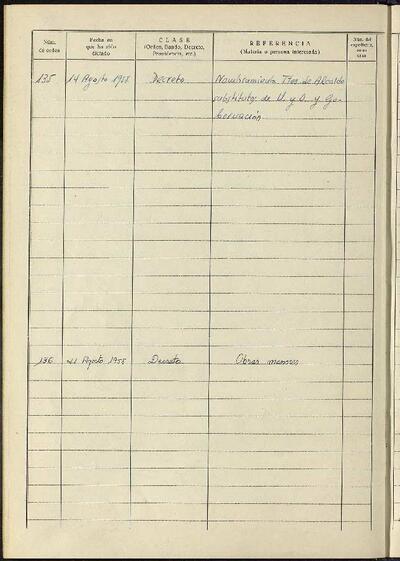 Núm. de orden
Fecha en que ha sido dictado
CLASE (Orden, Bando, Decreto, Providencia, etc.)
REFERENCIA (Materia o persona interesada)
Núm. del expediente,
135 14 Agosto 1958 Decreto Nombramiento Ttes. de Alcalde
substituto de U. y O. y Go-
bernación
136 21 Agosto 1958 Decreto Obras menores